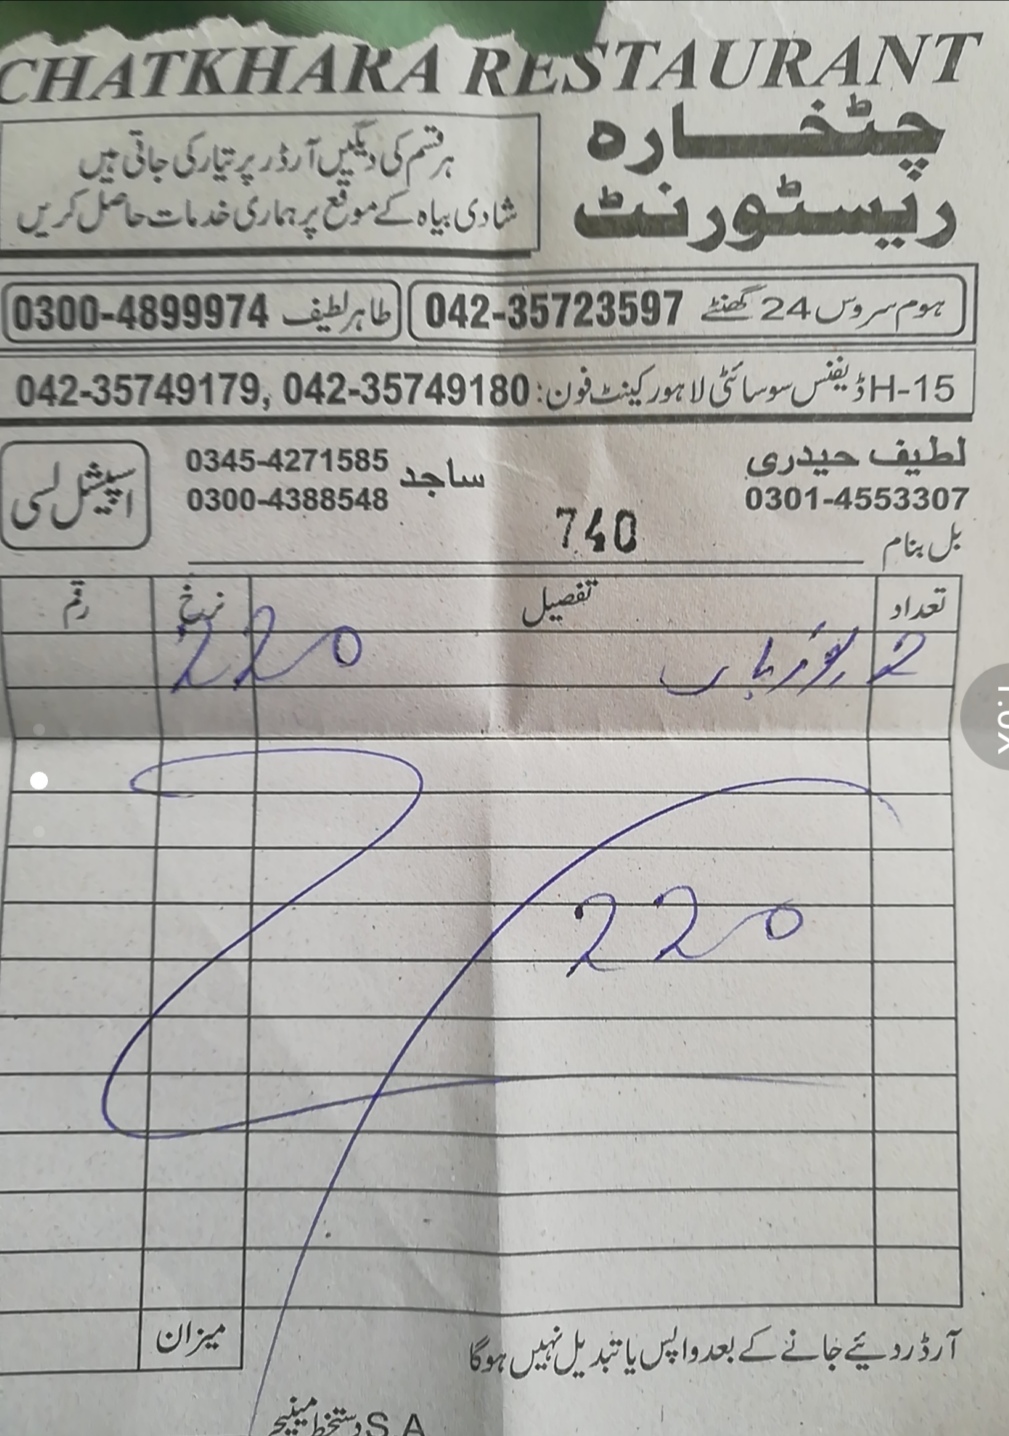 CHATKHARA RESTAURANT
چٹخارہ
ریسٹورنٹ
ہر قسم کی دیگیں آرڈر پر تیار کی جاتی ہیں
شادی بیاہ کے موقع پر ہماری خدمات حاصل کریں
ہوم سروس 24 گھنٹے 042-35723597
طاہر لطیف 0300-4899974
H-15 ڈیفنس سوسائٹی لاہور کینٹ فون: 042-35749180 ,042-35749179
لطیف حیدری
0301-4553307
ساجد 0345-4271585
0300-4388548
اسپیشل لسی
740
بل بنام
تعداد تفصیل نرخ رقم
2 220
220
میزان
آرڈر دیئے جانے کے بعد واپس یا تبدیل نہیں ہوگا
S.A دستخط مینیجر
1.0x